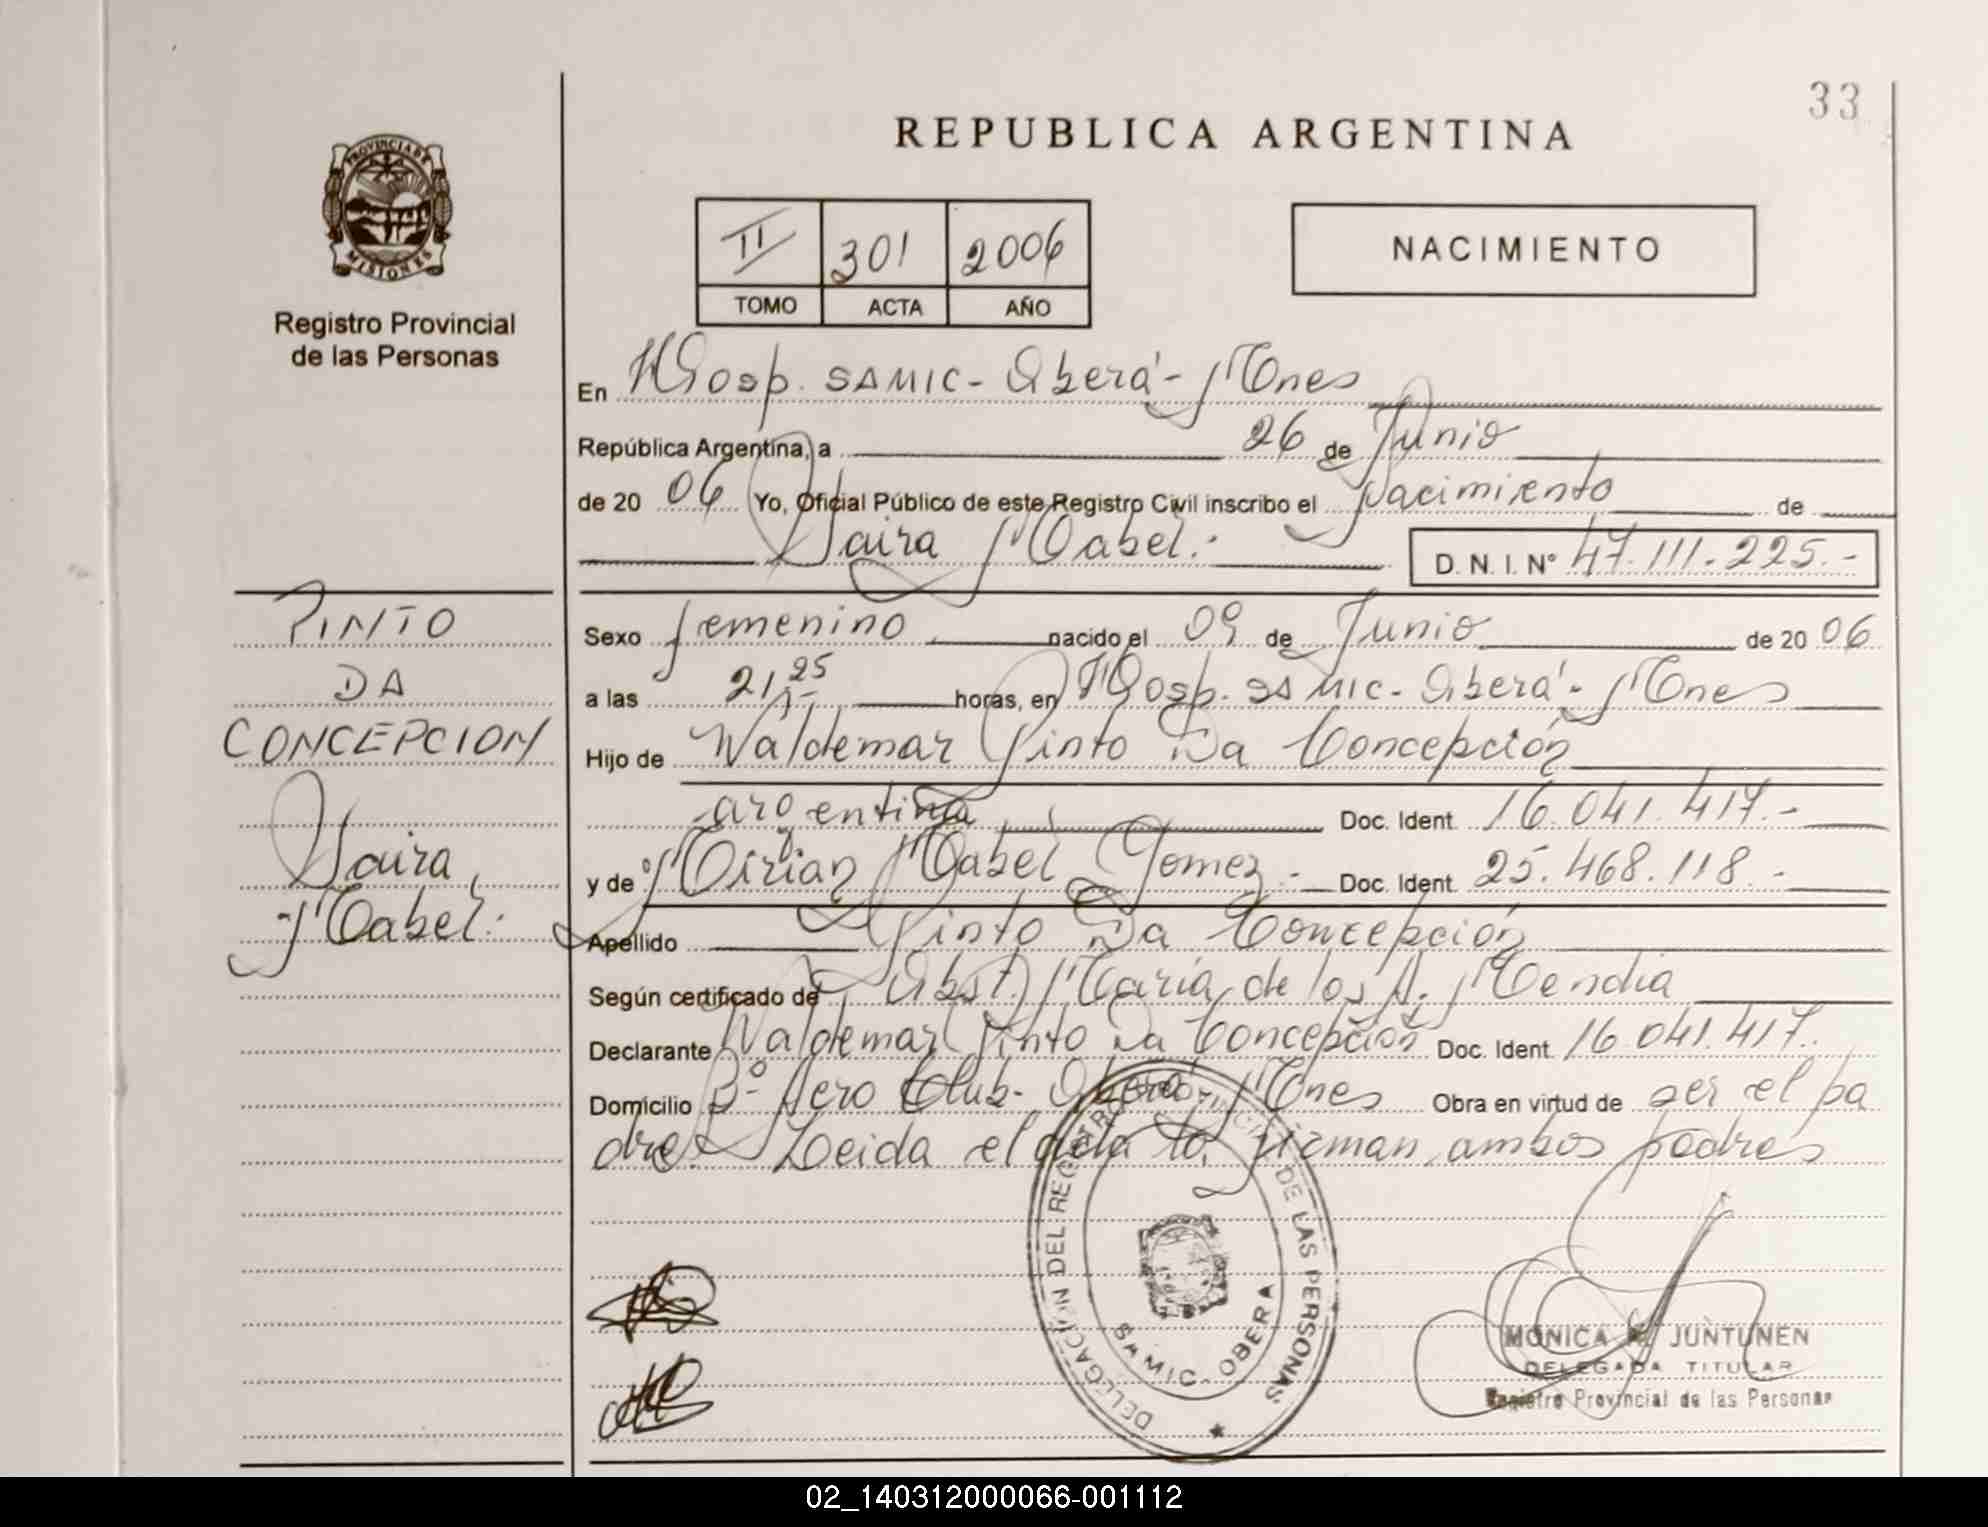 33
REPUBLICA ARGENTINA
PROVINCIA DE
MISIONES
Registro Provincial
de las Personas
II 301 2006
TOMO ACTA AÑO
NACIMIENTO
En Hosp. SAMIC - Oberá - Mnes
República Argentina, a 26 de Junio
de 20 06 Yo, Oficial Público de este Registro Civil inscribo el Nacimiento de
Yaira Mabel.-
D. N. I. Nº 47.111.225.-
PINTO
DA
CONCEPCION
Yaira
Mabel.
Sexo femenino nacido el 09 de Junio de 20 06
a las 21,25 horas, en Hosp. SAMIC - Oberá - Mnes
Hijo de Waldemar Pinto Da Concepción
argentina Doc. Ident. 16.041.417.-
y de Mirian Mabel Gomez.- Doc. Ident. 25.468.118.-
Apellido Pinto Da Concepción
Según certificado de Obst. María de los A. Mendia
Declarante Waldemar Pinto Da Concepción Doc. Ident. 16.041.417.
Domicilio Bº Aero Club - Oberá Mnes Obra en virtud de ser el pa
dre. Leida el acta la firman ambos padres
DELEGACION DEL REGISTRO PROVINCIAL DE LAS PERSONAS
SAMIC - OBERA
MONICA JUNTUNEN
DELEGADA TITULAR
Registro Provincial de las Personas
02_140312000066-001112